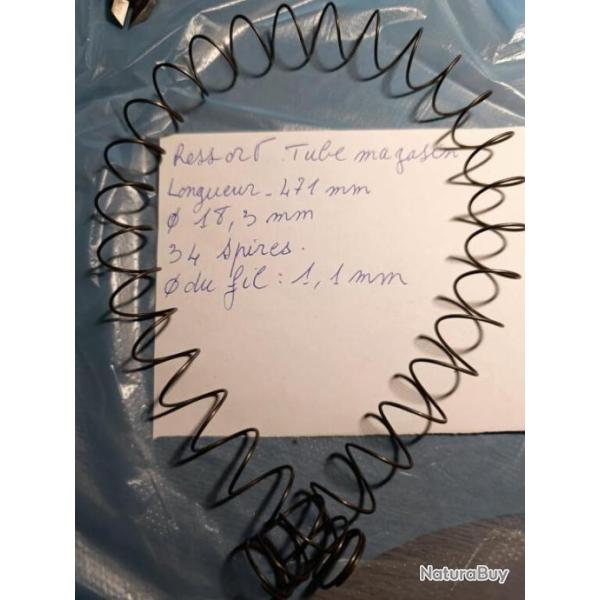 Ressort Tube magasin
Longueur - 471 mm
Ø 18,3 mm
34 spires.
Ø du fil : 1,1 mm
NaturaBuy